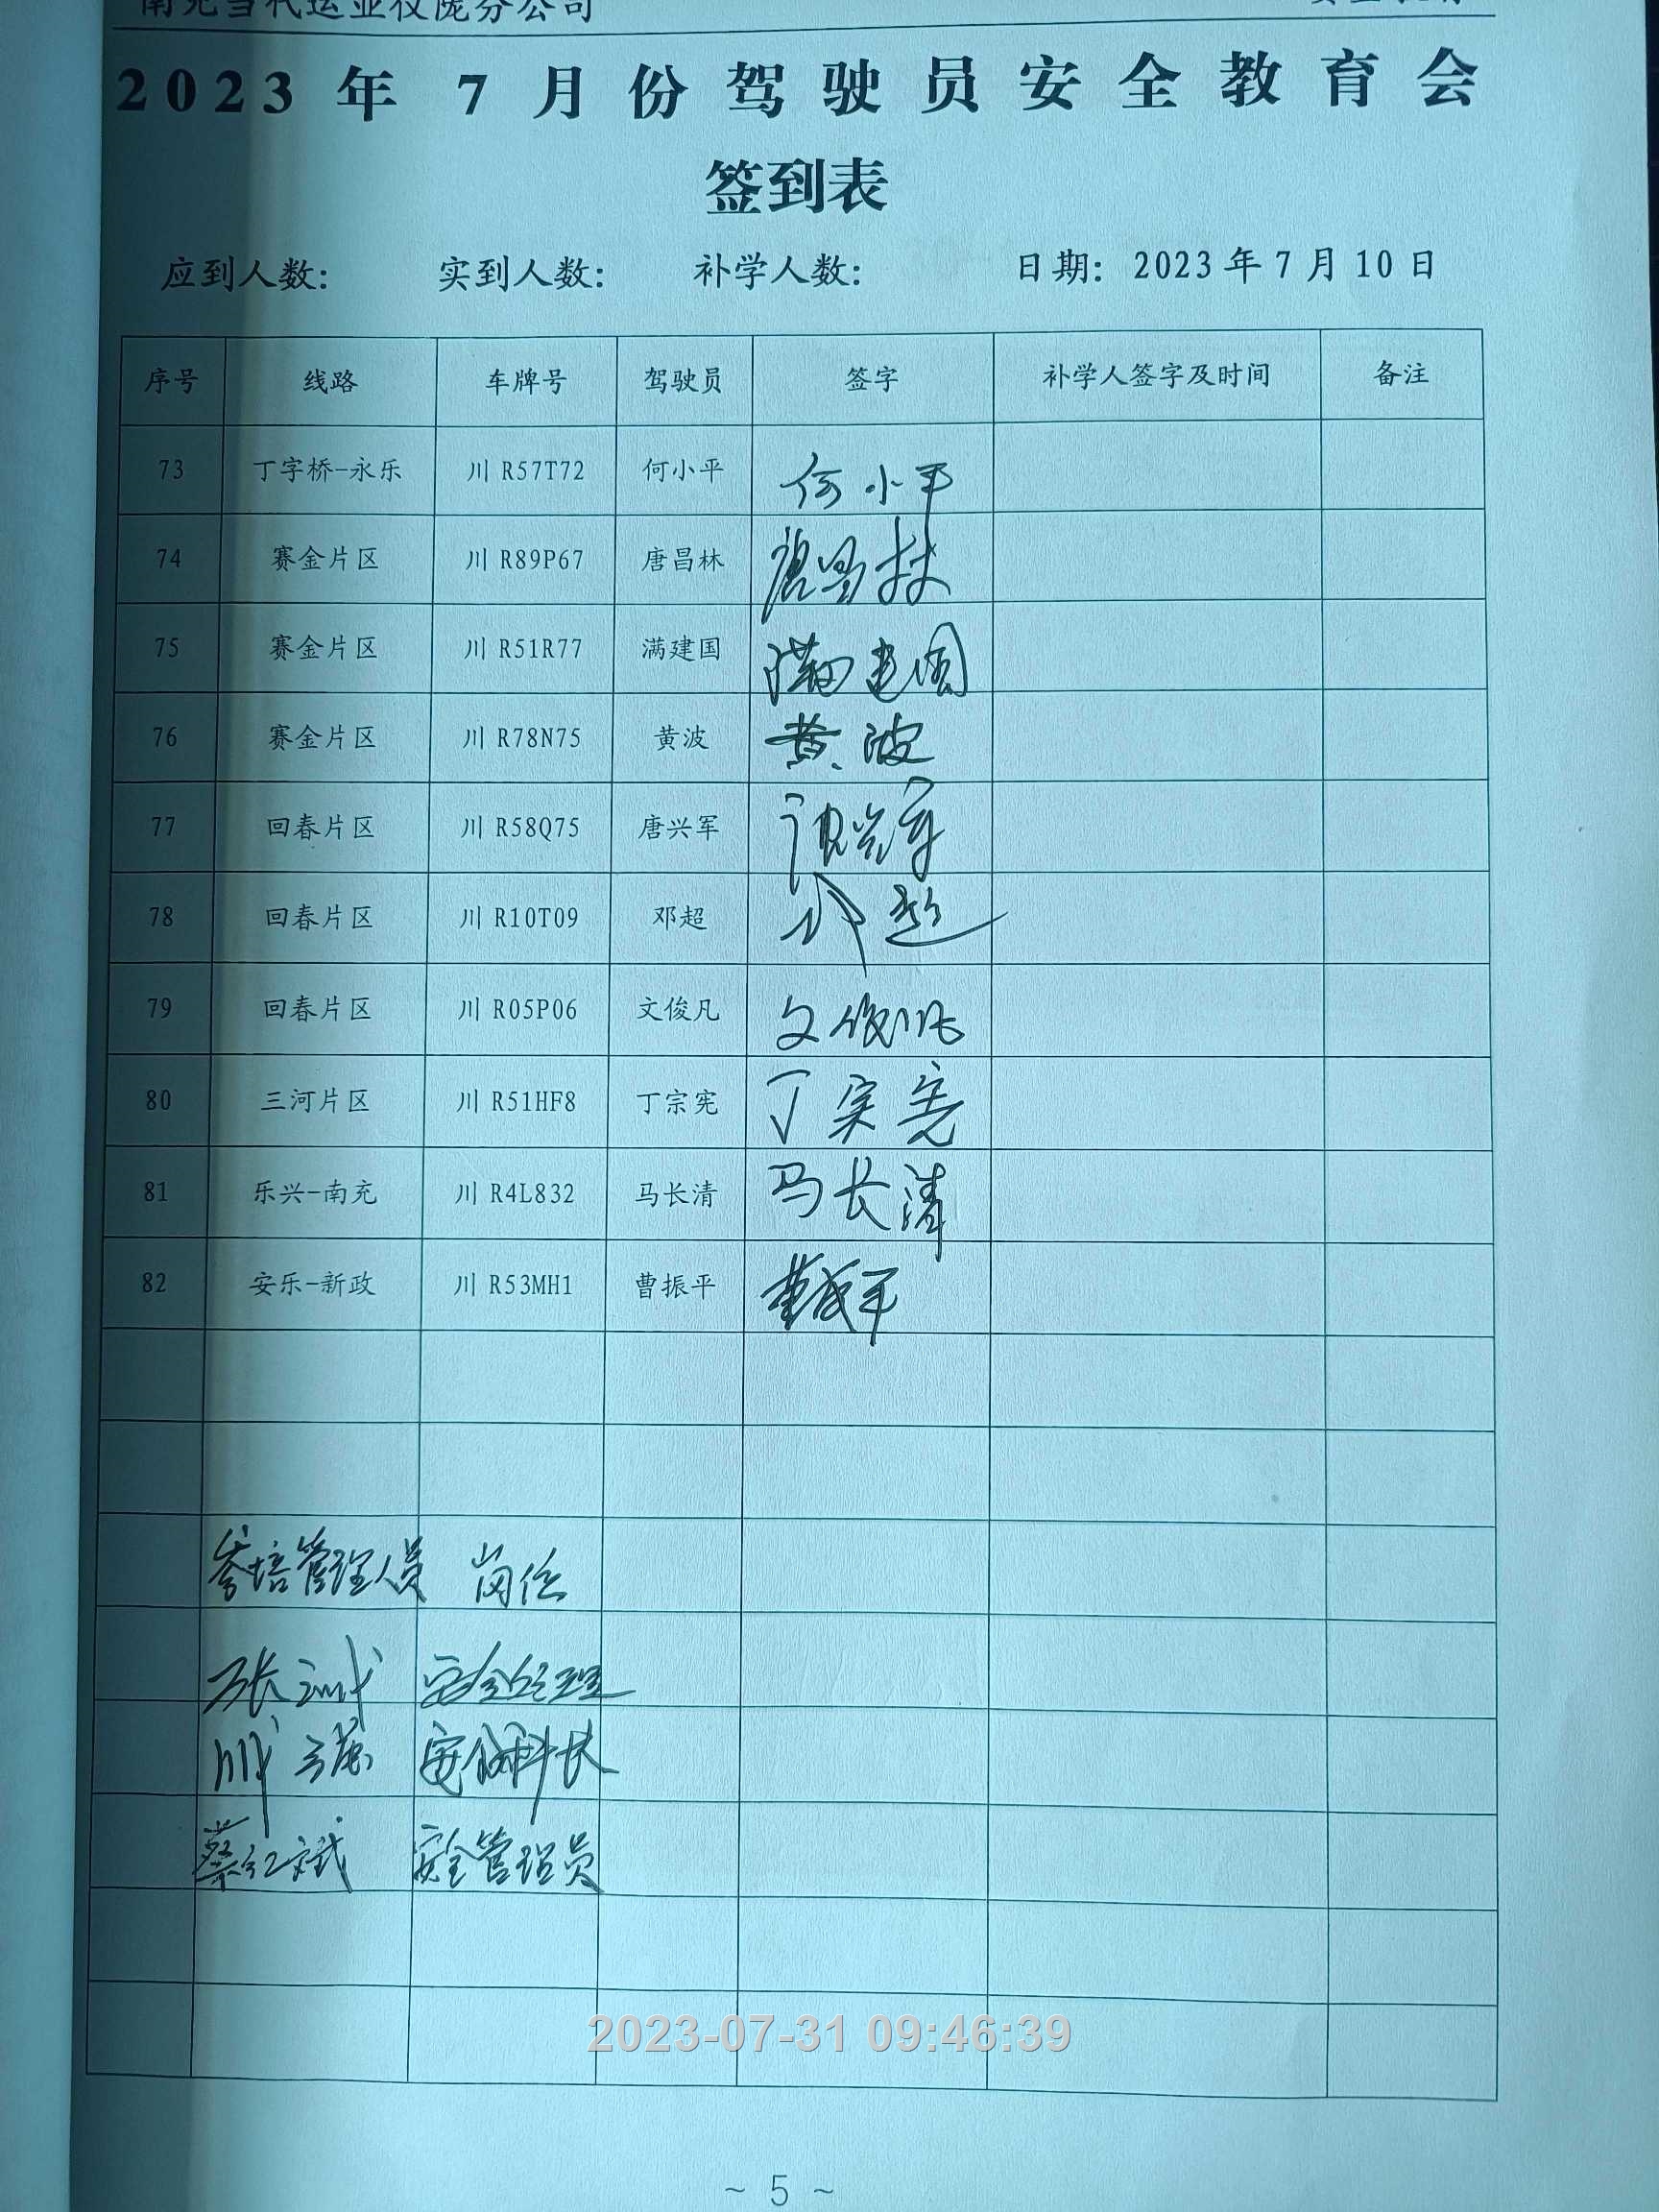 南充当代运业仪陇分公司
2023年7月份驾驶员安全教育会
签到表
应到人数: 实到人数: 补学人数: 日期: 2023年7月10日
序号 线路 车牌号 驾驶员 签字 补学人签字及时间 备注
73 丁字桥-永乐 川R57T72 何小平 何小平
74 赛金片区 川R89P67 唐昌林 唐昌林
75 赛金片区 川R51R77 满建国 满建国
76 赛金片区 川R78N75 黄波 黄波
77 回春片区 川R58Q75 唐兴军 唐兴军
78 回春片区 川R10T09 邓超 邓超
79 回春片区 川R05P06 文俊凡 文俊帆
80 三河片区 川R51HF8 丁宗宪 丁宗宪
81 乐兴-南充 川R4L832 马长清 马长清
82 安乐-新政 川R53MH1 曹振平 曹振平
参培管理人员 岗位
张 安全经理
安保科长
蔡红斌 安全管理员
2023-07-31 09:46:39
~ 5 ~